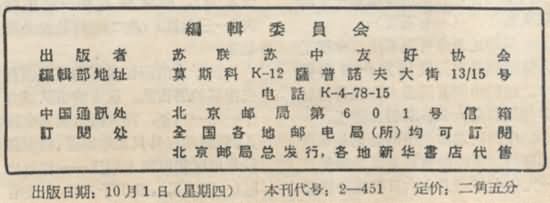 編輯委員会
出版者 苏联苏中友好协会
編輯部地址 莫斯科K-12薩普諾夫大街13/15号
电話 K-4-78-15
中国通訊处 北京邮局第601号信箱
訂閱处 全国各地邮电局(所)均可訂閱
北京邮局总发行,各地新华書店代售
出版日期:10月1日(星期四) 本刊代号:2—451 定价:二角五分